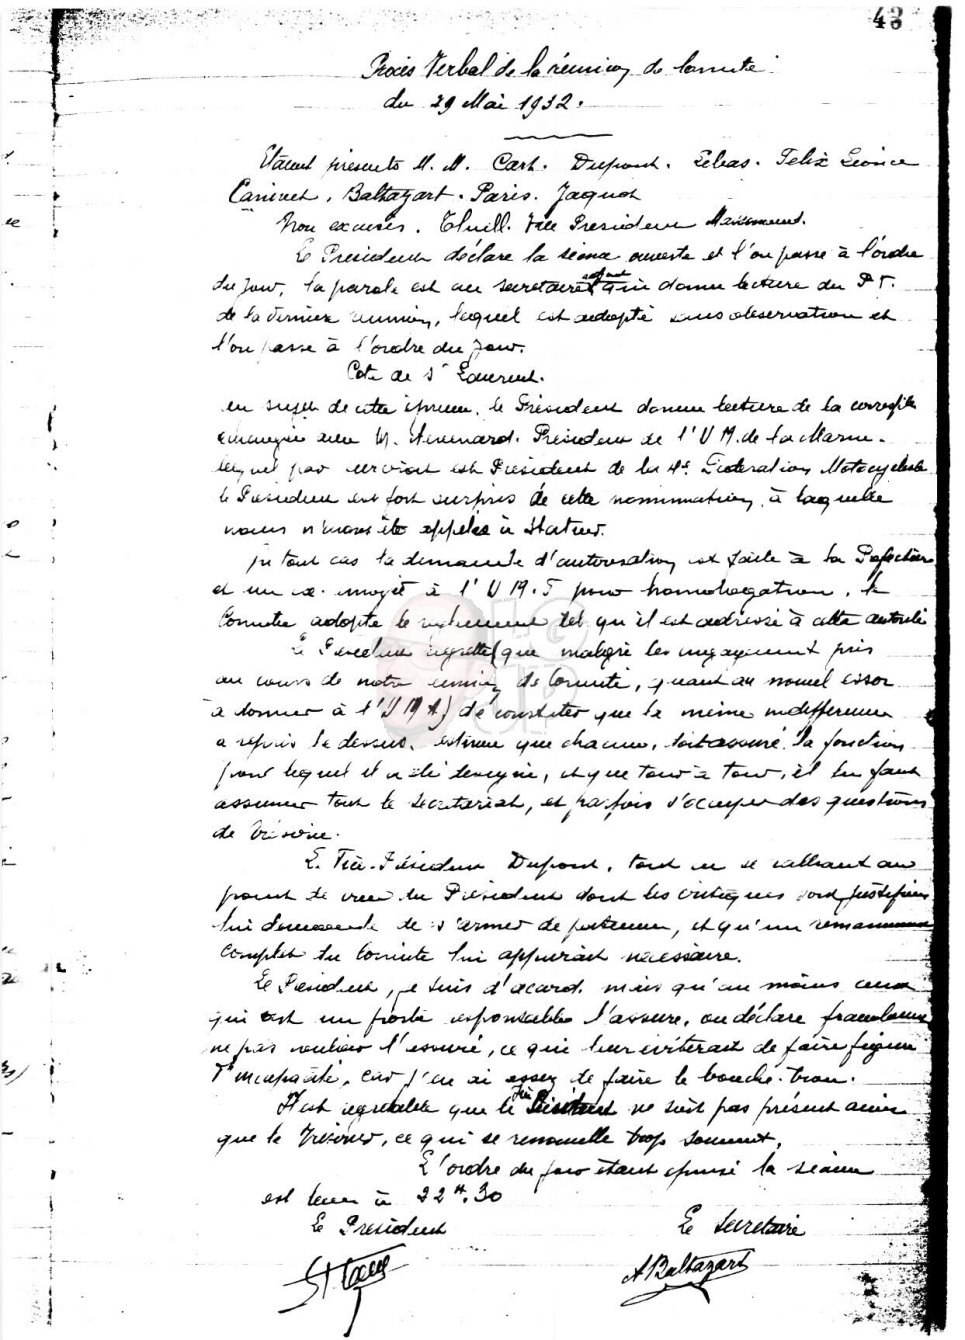 48
Procès Verbal de la réunion de Comité
du 29 Mai 1932.
Etaient présents M. M. Cart. Dupont. Lebas. Felix Leonce
Caninet. Baltazart. Paris. Jaquot
Non excusés. Thuill. Vice President
Le President déclare la séance ouverte et l'on passe à l'ordre
du jour, la parole est au secretaire adjoint qui donne lecture du P V.
de la derniere reunion, lequel est adopté sans observation et
l'on passe à l'ordre du jour.
Cote de St Laurent.
au sujet de cette épreuve, le Président donne lecture de la
echangée avec M. President de l'U M. de la Marne.
lequel par est President de la 4e Federation Motocycliste
le President est fort surpris de cette nommination à laquelle
nous n'avons été appelés à Statuer.
En tout cas la demande d'autorisation est faite à la Prefecture
et un ex. envoyé à l'U M. F pour homologation. le
Comité adopte le reglement tel qu'il est adressé à cette autorité
Le President regrette que malgré les engagements pris
au cours de notre reunion de Comité, quant au nouvel essor
à donner à l'U M A de constater que la même indifference
a repris le dessus, estime que chacun, doit assuré la fonction
pour lequel il a été designé, et que tour à tour, il lui faut
assumer tout le secretariat, et parfois s'occuper des questions
de Trésorie.
Le Vice-Président Dupont, tout en se ralliant au
point de vue du President dont les critiques sont justifiées
lui demande de s'armer de patience, et qu'un remaniement
complet du comité lui apparait necessaire.
Le President, je suis d'accord, mais qu'au moins ceux
qui ont un poste responsable l'assure, ou déclare franchement
ne pas vouloir l'assuré, ce qui leur eviterait de faire figure
d'incapacité, car j'en ai assez de faire le bouche-trou.
Il est regrettable que le Vice President ne soit pas présent ainsi
que le Trésorier, ce qui se renouvelle trop souvent.
L'ordre du jour étant épuisé la séance
est levée à 22 H. 30
Le President
Le Secretaire
A Baltazart